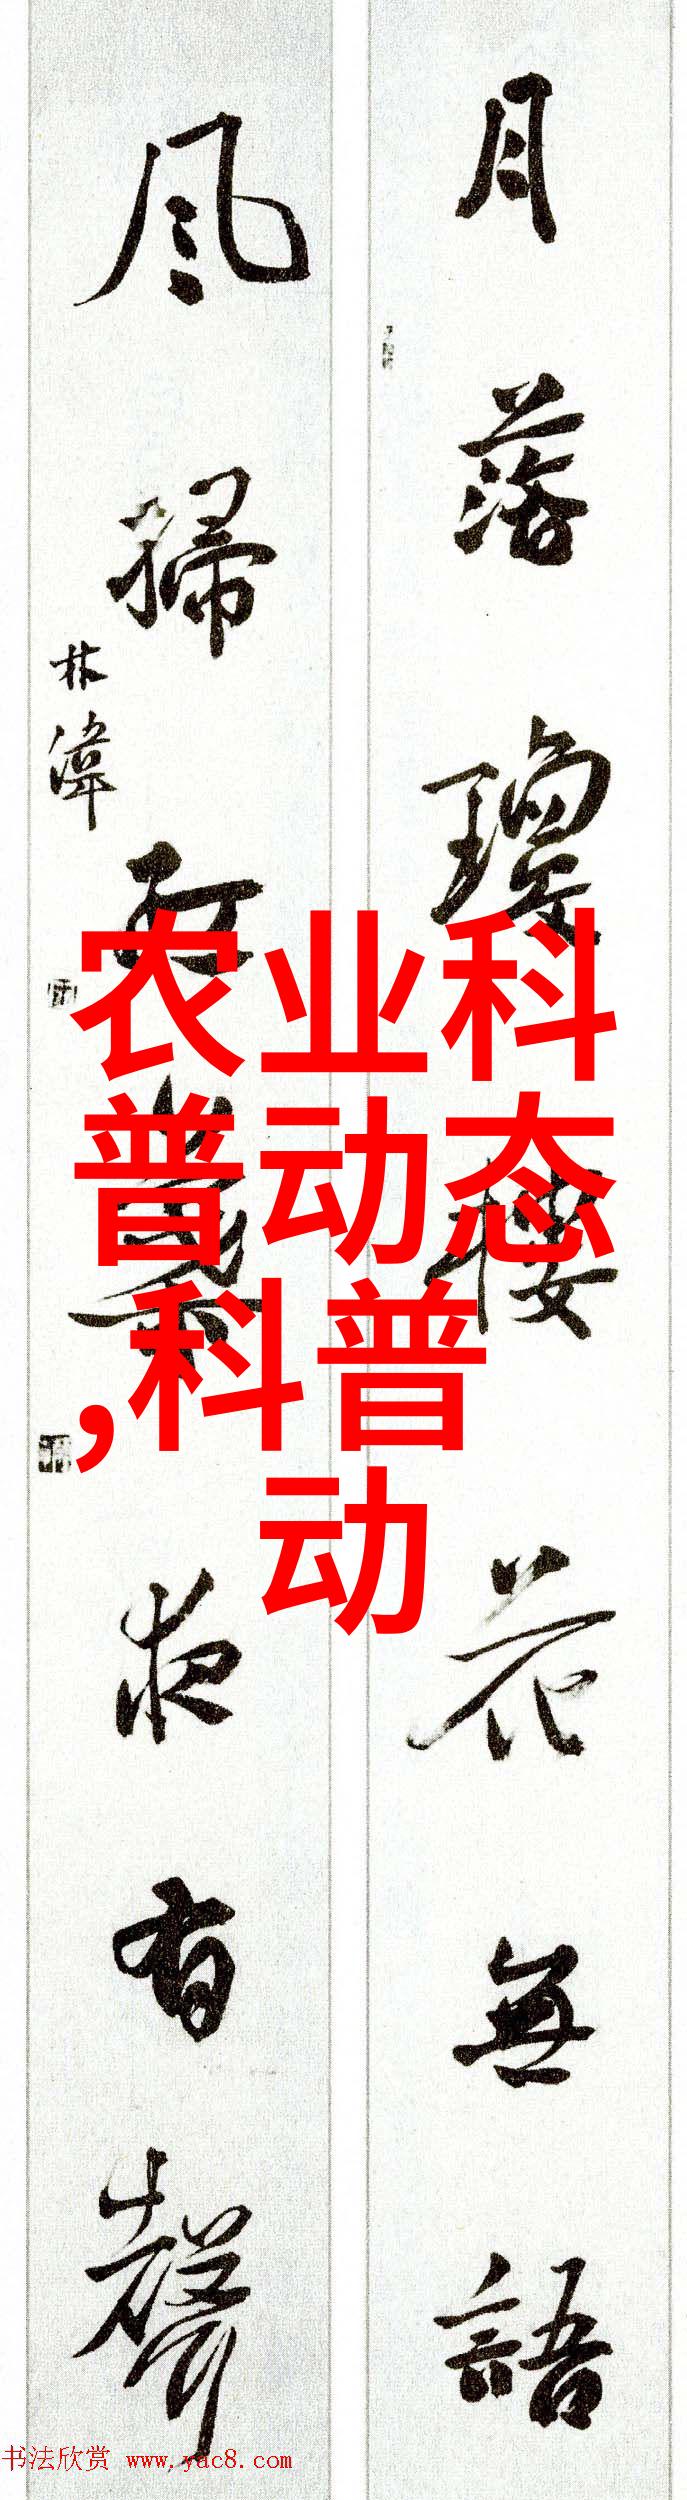 月落瓊樓花無語
風掃紅葉夜有聲
林濤
农业科
普动态
,科普
动
书法欣赏 www.yac8.com